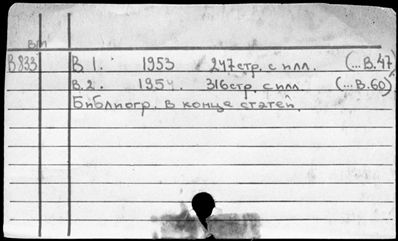 В/И
В833 В 1. 1953 247стр. с илл. (...В.47)
В.2. 1954. 316стр. с илл. (...В.60)
Библиогр. в конце статей.